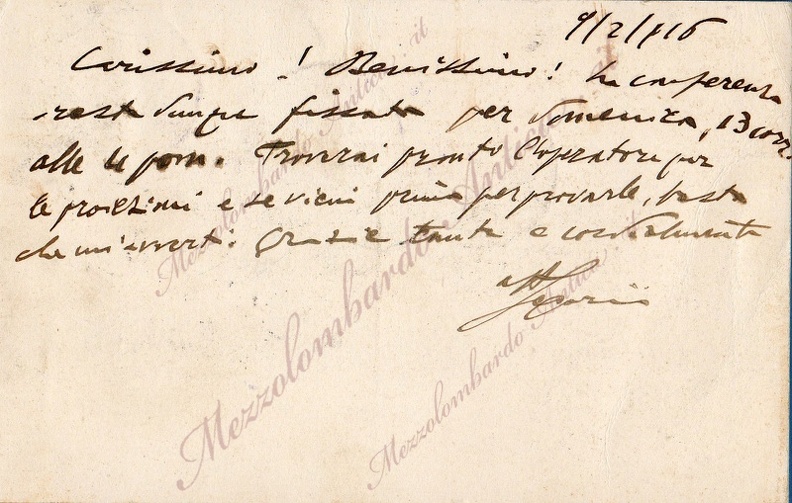 9/2/916
Carissimo! Benissimo! La conferenza
resta dunque fissata per domenica, 13 corr.
alle 4 pom. Troverai pronto l'operatore per
le proiezioni e se vieni prima per provarle, basta
che mi avverti. Grazie tante e cordialmente
aff
Mezzolombardo Antica.it
Mezzolombardo Antica.it
Mezzolombardo Antica.it